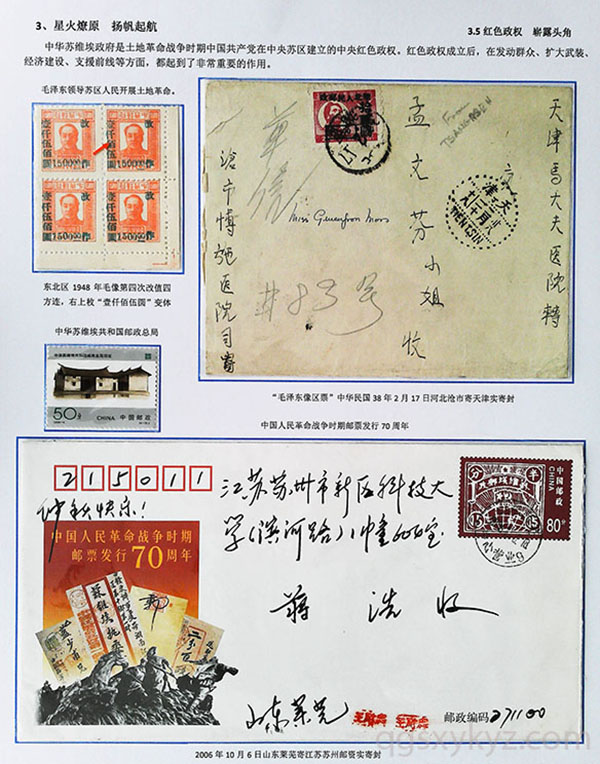 3、星火燎原 扬帆起航
3.5 红色政权 崭露头角
中华苏维埃政府是土地革命战争时期中国共产党在中央苏区建立的中央红色政权。红色政权成立后，在发动群众、扩大武装、
经济建设、支援前线等方面，都起到了非常重要的作用。
毛泽东领导苏区人民开展土地革命。
改作
壹仟伍佰圆
1500.00
东北区 1948 年毛像第四次改值四
方连，右上枚“壹仟佰伍圆”变体
中华苏维埃共和国邮政总局
50分
CHINA 中国邮政
天津马大夫医院转
交
孟文芬小姐收
沧市博施医院司寄
From
Miss Gwenfron Moss
#83号
天津
TIENTSIN
“毛泽东像区票”中华民国 38 年 2 月 17 日河北沧市寄天津实寄封
中国人民革命战争时期邮票发行 70 周年
215011
仲秋快乐！
江苏苏州市新区科技大
学(滨河路)
蒋浩收
中国人民革命战争时期
邮票发行70周年
中国邮政
CHINA
80分
山东莱芜
邮政编码 271100
2006 年 10 月 6 日山东莱芜寄江苏苏州邮资实寄封
qgsxykyz.com